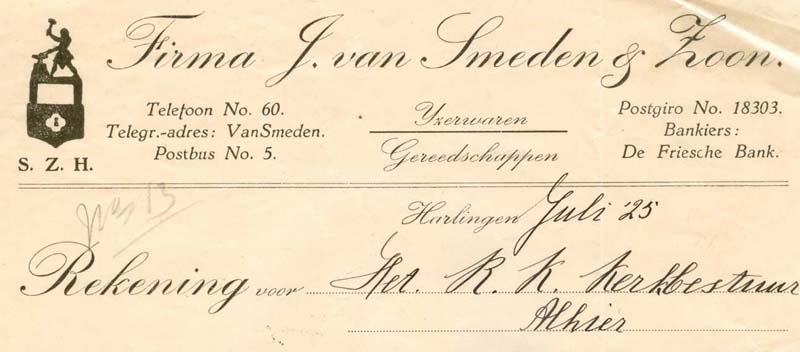 Firma J. van Smeden & Zoon.
S. Z. H.
Telefoon No. 60.
Telegr.-adres: VanSmeden.
Postbus No. 5.
Yzerwaren
Gereedschappen
Postgiro No. 18303.
Bankiers:
De Friesche Bank.
Harlingen Juli '25
Rekening voor Het. R. K. Kerkbestuur
Alhier